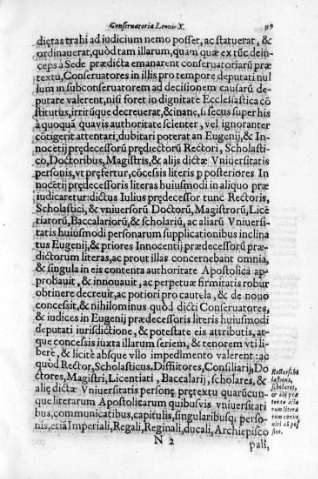 Conseruatoria Leonis X.
dictas trahi ad iudicium nemo posset, ac statuerat, &
ordinauerat, quòd tam illarum, quam quæ ex tũc dein-
ceps à Sede prædicta emanarent conseruatoriarũ præ
textu, Conseruatores in illis pro tempore deputati nul
lum in subconseruatorem ad decisionem causarũ de-
putare valerent, nisi foret in dignitate Ecclesiastica cõ
stitutus, irritũque decreuerat, & inane, si secus super his
à quoquã quauis authoritate scienter, vel ignoranter
cõtigerit attentari, dubitari poterat an Eugenij, & In-
nocetij prędecessorũ prędictorũ Rectori, Scholasti-
cò, Doctoribus, Magistris, & alijs dictæ Vniuersitatis
personis, vt pręfertur, cõcessis literis p posteriores In
nocetij prędecessoris literas huiusmodi in aliquo præ
iudicaretur: dictus Iulius prędecessor tunc Rectoris,
Scholastici, & vniuersorũ Doctorũ, Magistrorũ, Licẽ
tiatorũ, Baccalariorũ, & scholariũ, ac aliarũ Vniuersi-
tatis huiusmodi personarum supplicationibus inclina
tus Eugenij, & priores Innocentij prædecessorũ præ-
dictorum literas, ac prout illas concernebant omnia,
& singula in eis contenta authoritate Apostolica ap-
probauit, & innouauit, ac perpetuæ firmitatis robur
obtinere decreuit, ac potiori pro cautela, & de nouo
concessit, & nihilominus quòd dicti Conseruatores,
& iudices in Eugenij prædecessoris literis huiusmodi
deputati iurisdictione, & potestate eis attributis, at-
que concessis iuxta illarum seriem, & tenorem vti li-
berè, & licitè absque vllo impedimento valerent: ac
quòd Rector, Scholasticus, Diffitores, Consiliarij, Do
ctores, Magistri, Licentiati, Baccalarij, scholares, &
alię dictæ Vniuersitatis personę prętextu quarũcun-
que literarum Apostolicarum quibusvis vniuersitati
bus, communicatibus, capitulis, singularibusq; perso-
nis, etiã Imperiali, Regali, Reginali, ducali, Archiepisco
N 2
pali,
scholares,
& alij præ